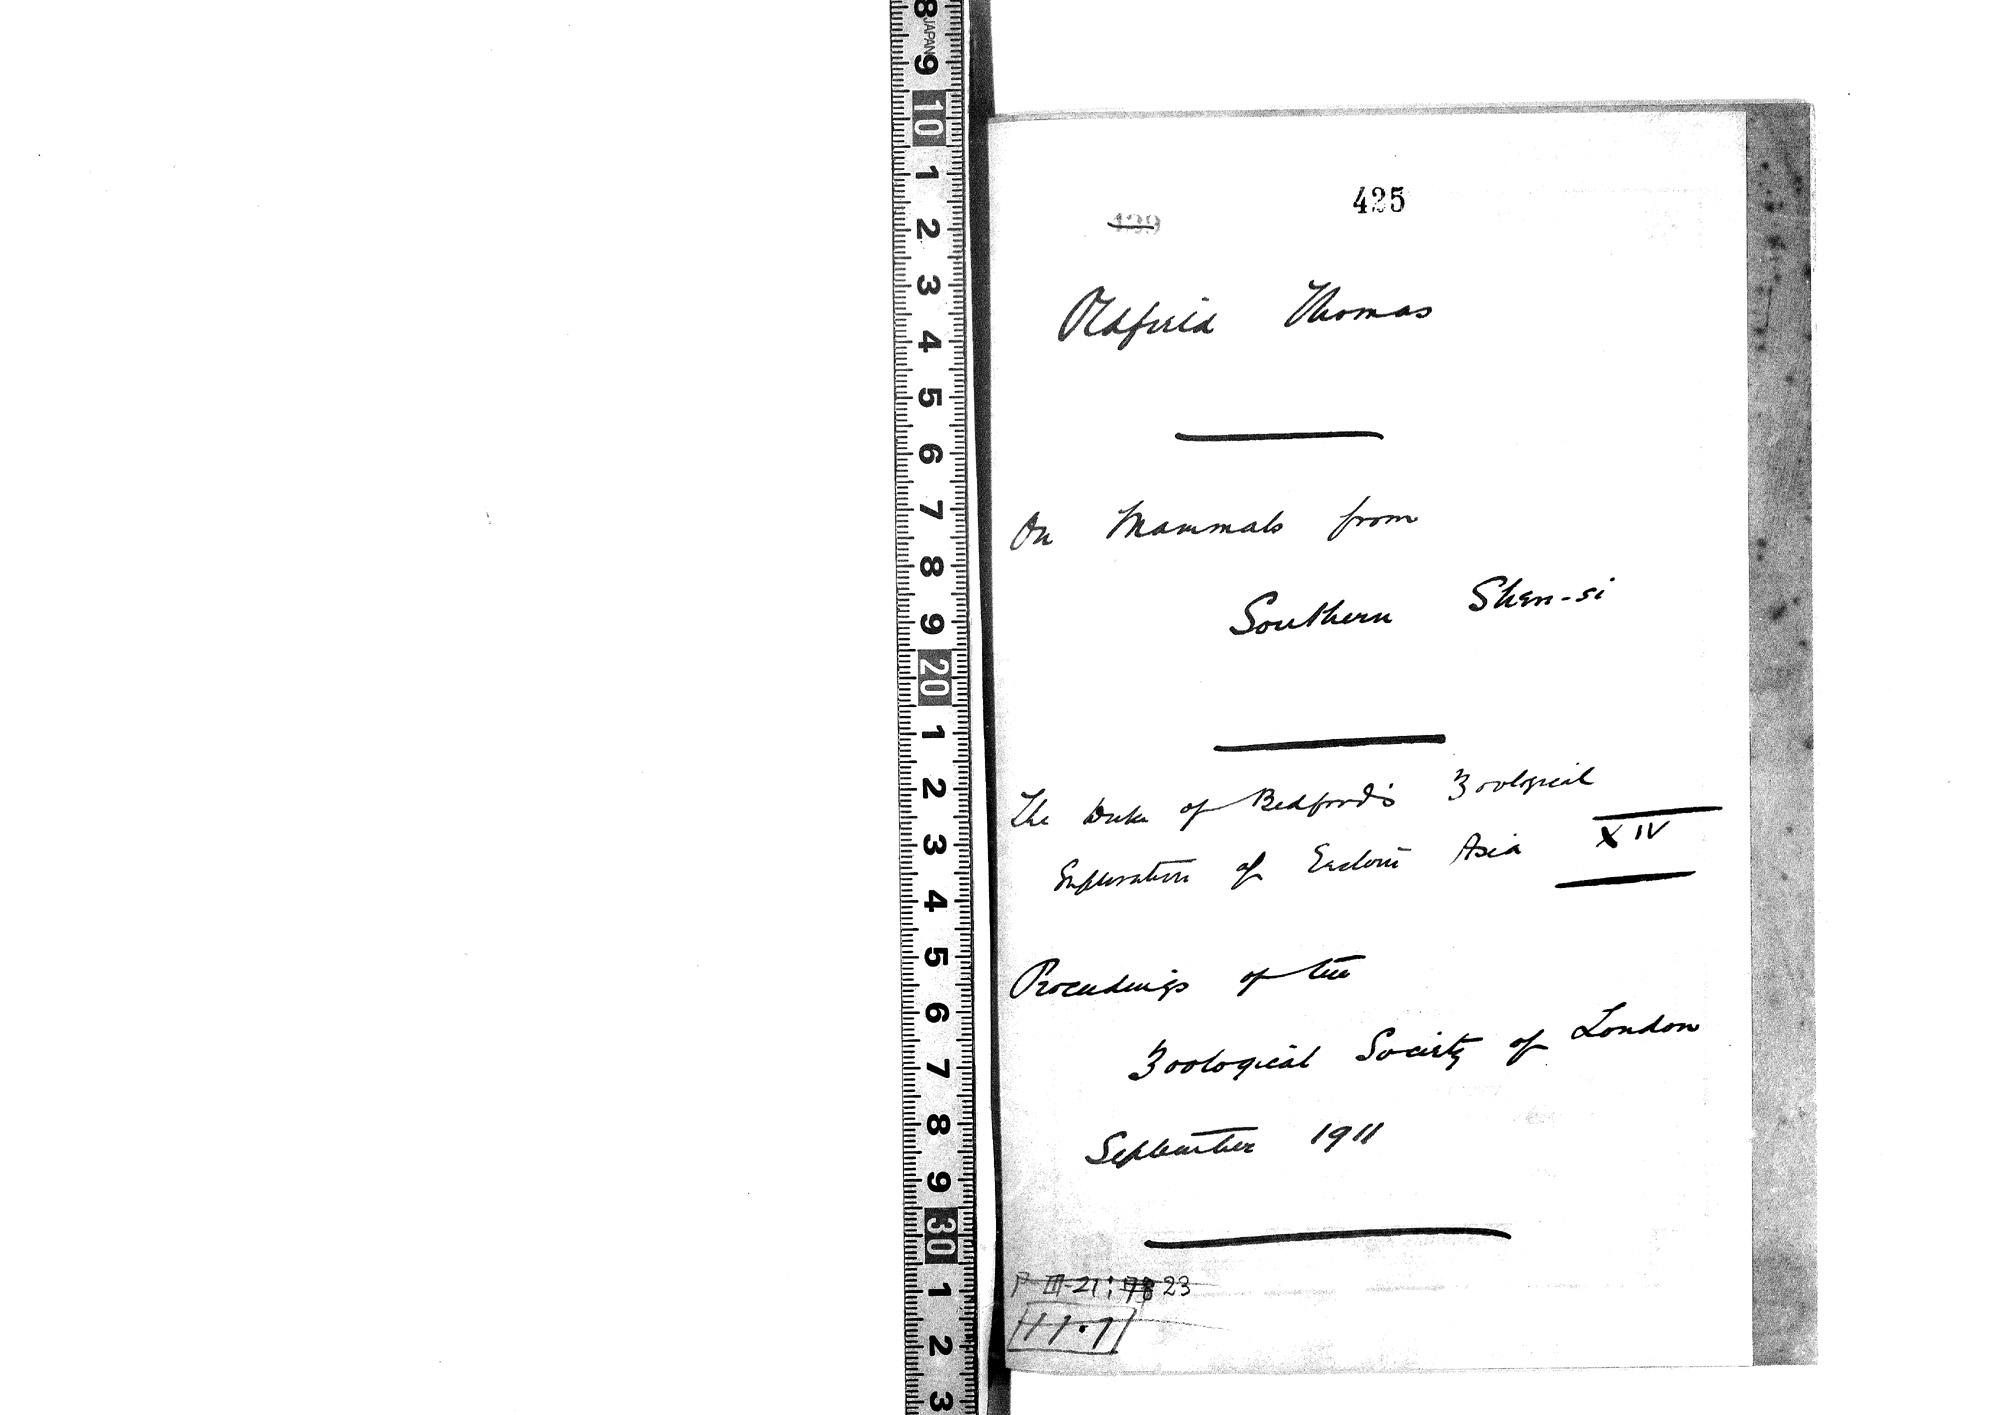 425
139
Oldfield Thomas
On Mammals from
Southern Shen-si
The Duke of Bedford's Zoological
Exploration of Eastern Asia XIV
Proceedings of the
Zoological Society of London
September 1911
P III-21: 23
11.7
8 JAPAN 9 10 1 2 3 4 5 6 7 8 9 20 1 2 3 4 5 6 7 8 9 30 1 2 3